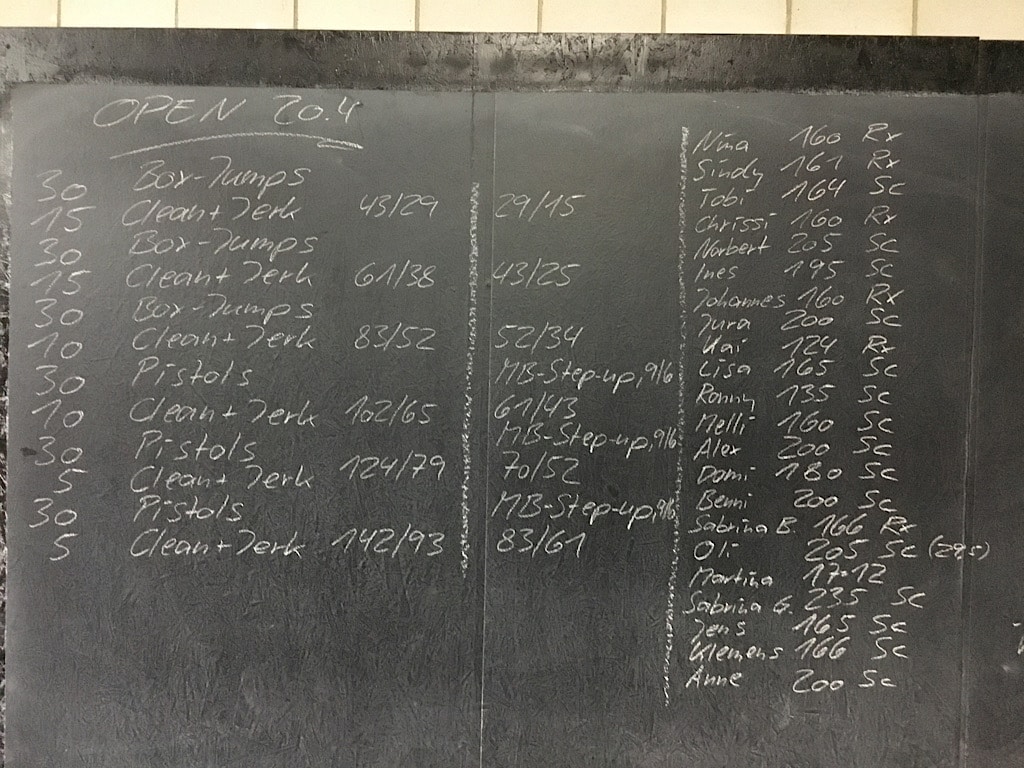 OPEN 20.4
30 Box-Jumps
15 Clean + Jerk 43/29 29/15
30 Box-Jumps
15 Clean + Jerk 61/38 43/25
30 Box-Jumps
10 Clean + Jerk 83/52 52/34
30 Pistols MB-Step-up, 9/6
10 Clean + Jerk 102/65 61/43
30 Pistols MB-Step-up, 9/6
5 Clean + Jerk 124/79 70/52
30 Pistols MB-Step-up, 9/6
5 Clean + Jerk 142/93 83/61
Nina 160 Rx
Sindy 161 Rx
Tobi 164 Sc
Chrissi 160 Rx
Norbert 205 Sc
Ines 195 Sc
Johannes 160 Rx
Jura 200 Sc
Kai 124 Rx
Lisa 165 Sc
Ronny 135 Sc
Melli 160 Sc
Alex 200 Sc
Domi 180 Sc
Benni 200 Sc
Sabrina B. 166 Rx
Oli 205 Sc
Martina 17:12
Sabrina G. 235 Sc
Jens 165 Sc
Klemens 166 Sc
Anne 200 Sc